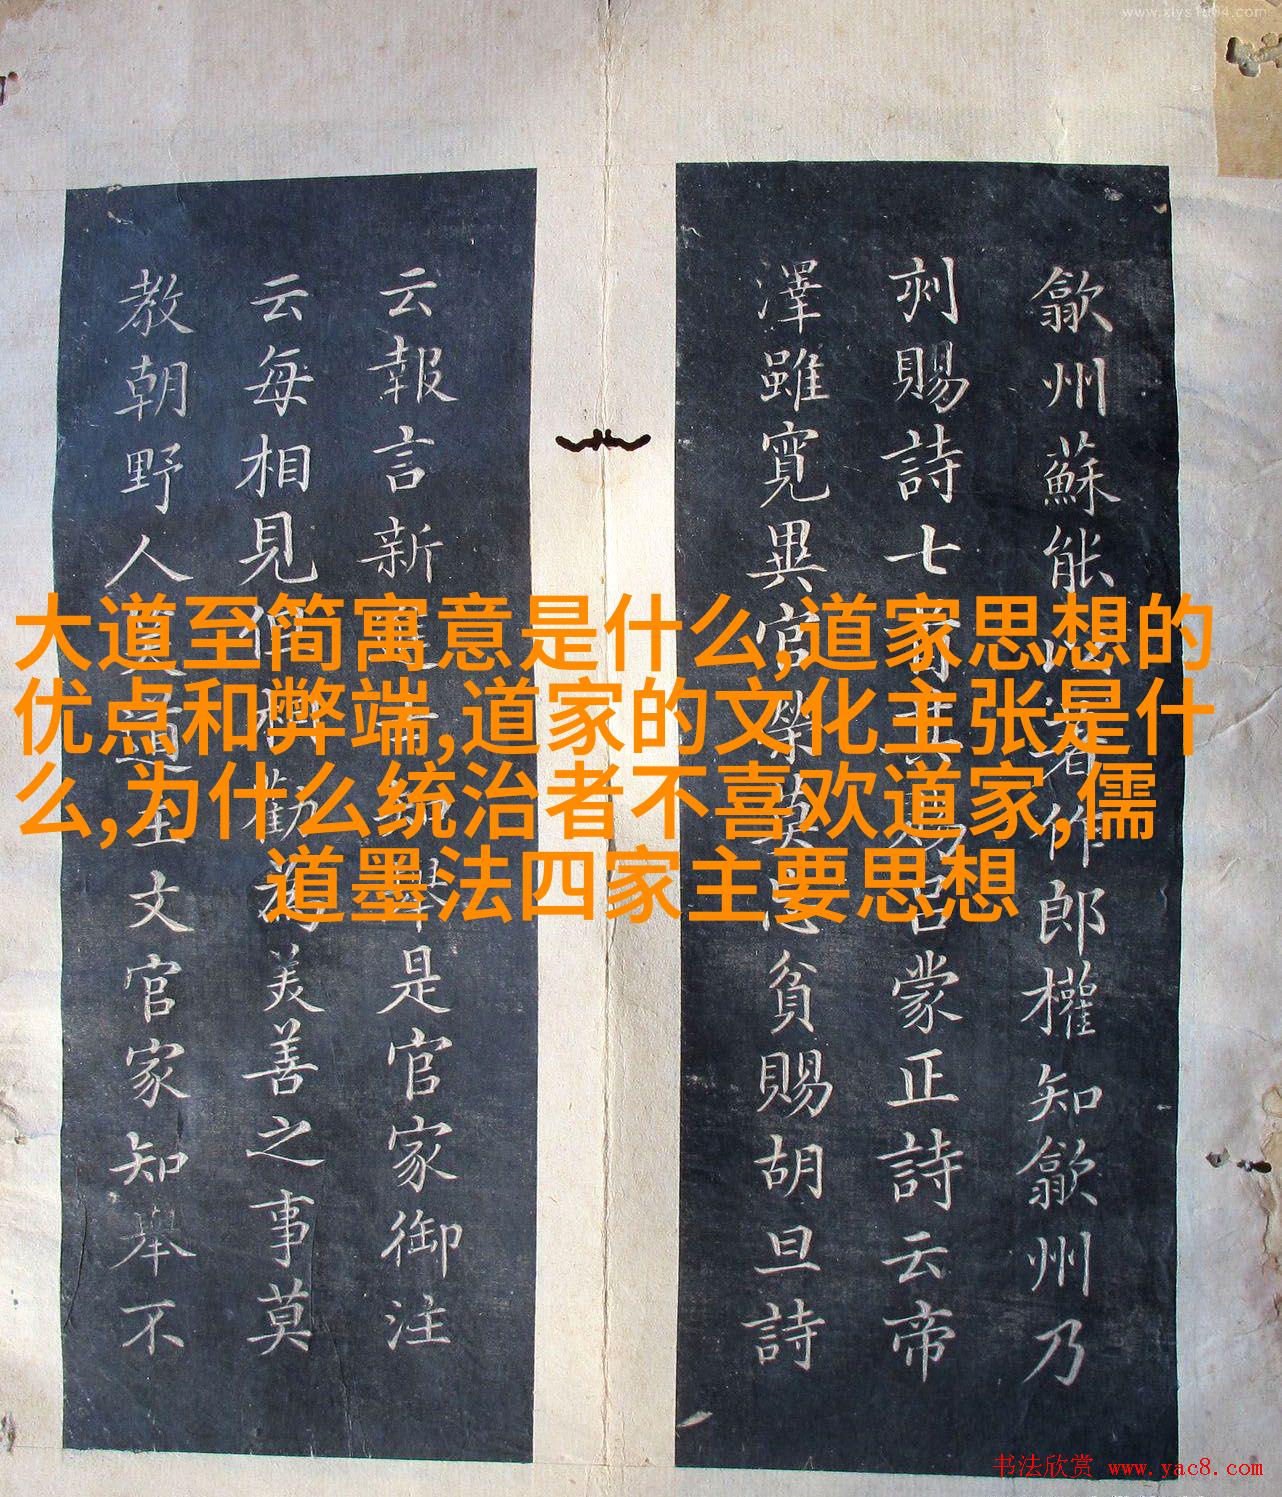 www.xiys1004.com
歙州蘇能著作郎權知歙州乃
刾賜詩七首其賜呂蒙正詩云帝
澤雖寬異官榮莫忘貧賜胡旦詩
云報言新進士知舉是官家御注
云每相見但相勸為美善之事莫
教朝野人莫道主文官家知舉不
大道至简寓意是什么,道家思想的
优点和弊端,道家的文化主张是什
么,为什么统治者不喜欢道家,儒
道墨法四家主要思想
书法欣赏 www.yac8.com